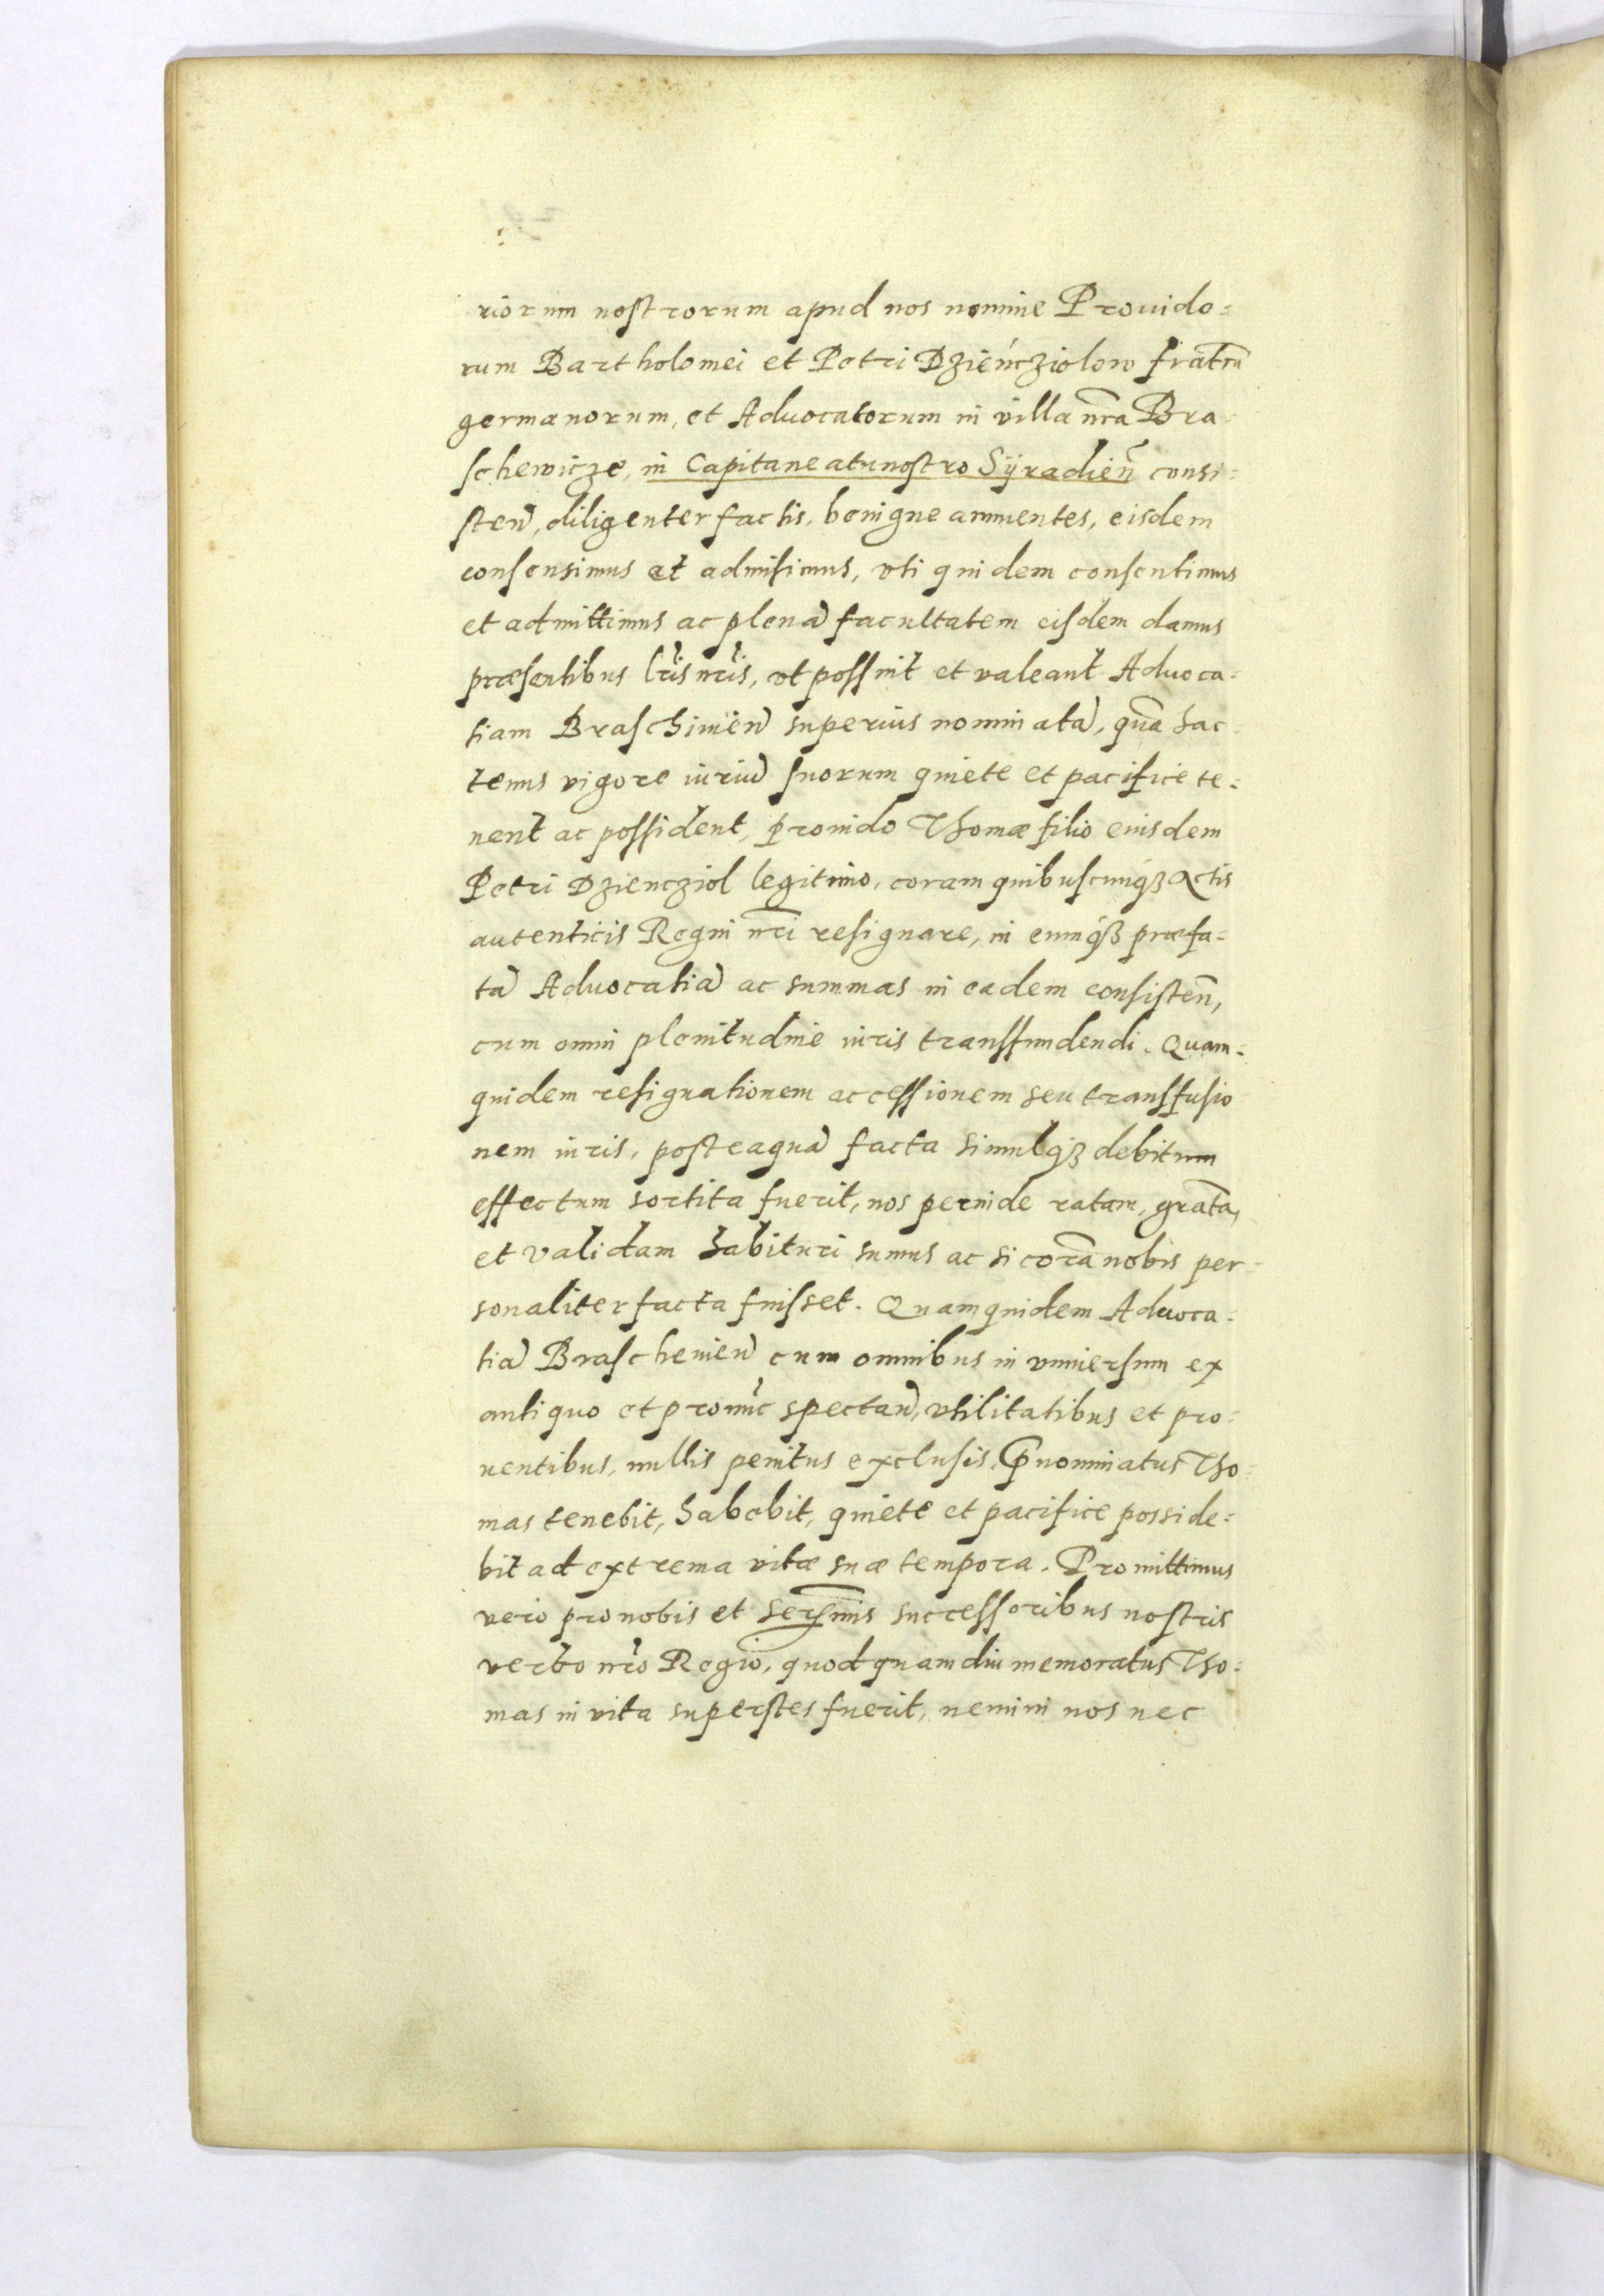 riorum nostrorum apud nos nomine Prouido=
rum Bartholomei et Petri Dzieńcziolow fratrū
germanorum, et Aduocatorum in villa nr̄a Bra=
schewicze, in Capitaneatu nostro Sÿradień consi=
steń, diligenter factis, benigne annuentes, eisdem
consensimus et admisimus, vti quidem consentimus
et admittimus ac plenā facultatem eisdem damus
præsentibus lr̄is nr̄is, vt possint et valeant Aduoca=
tiam Braschiuień superius nominatā, quā hac=
tenus vigore iuriū suorum quiete et pacifice te=
nent ac possident, prouido Thomæ filio eiusdem
Petri Dziencziol legitimo, coram quibuscunq́ꝫ Actis
autenticis Regni nr̄i resignare, in eumq́ꝫ præfa=
tā Aduocatiā ac summas in eadem consisteń,
cum omni plenitudine iuris transfundendi. Quam=
quidem resignationem ac cessionem seu transfusio
nem iuris, posteaquā facta simulq́ꝫ debitum
effectum sortita fuerit, nos perinde ratam, gratā,
et validam habituri sumus ac si corā nobis per=
sonaliter facta fuisset. Quamquidem Aduoca=
tiā Braschewień cum omnibus in vniuersum ex
antiquo et pronūc spectań, vtilitatibus et pro=
uentibus, nullis penitus exclusis, p̄nominatus Tho=
mas tenebit, habebit, quiete et pacifice posside=
bit ad extrema vitæ suæ tempora. Promittimus
vero pro nobis et Serēnmis successoribus nostris
verbo nr̄o Regio, quod quamdiu memoratus Tho=
mas in vita superstes fuerit, nemini nos nec